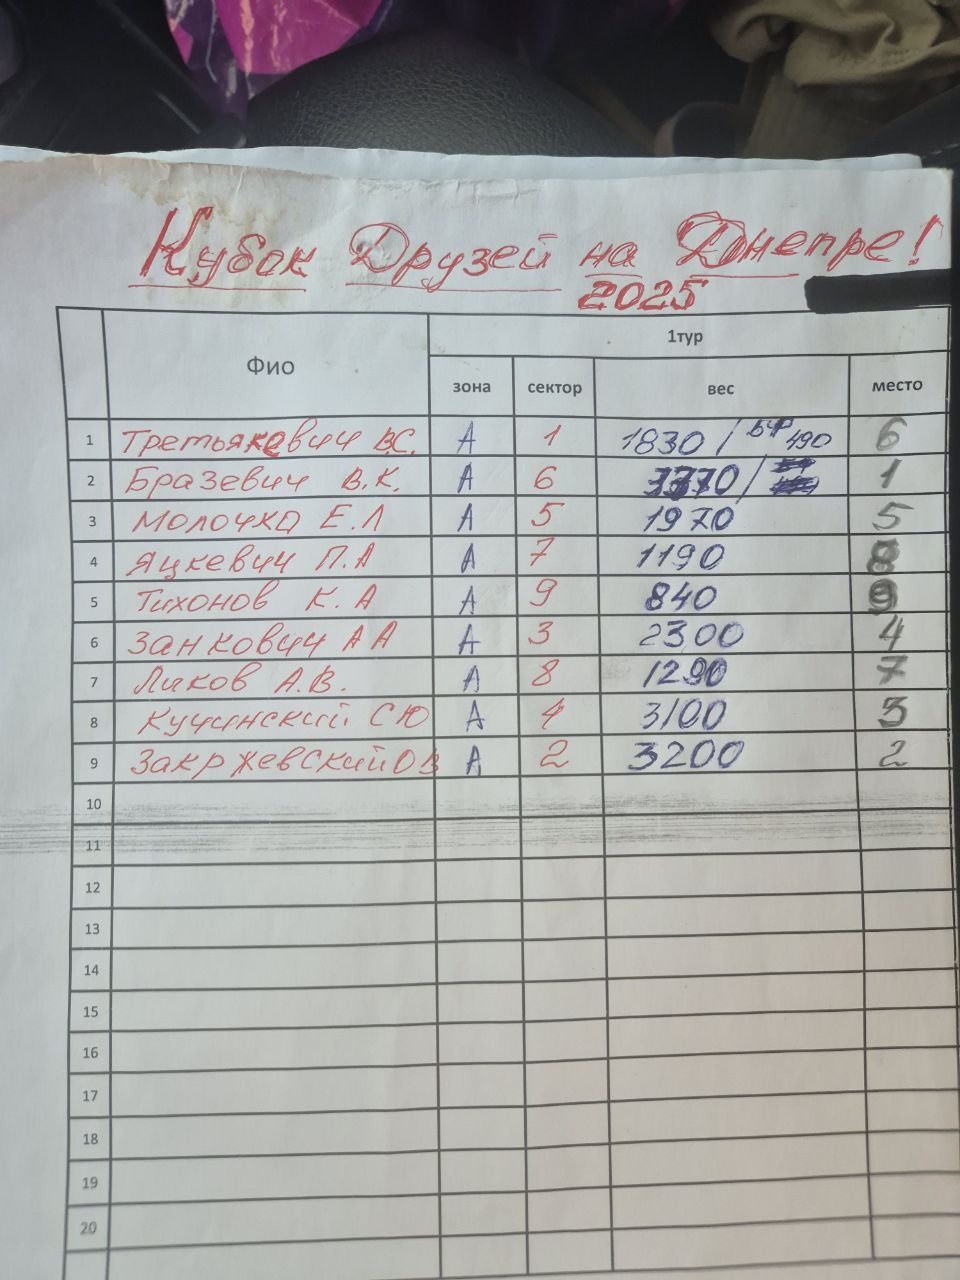 Кубок Друзей на Днепре!
2025
Фио 1тур
зона сектор вес место
1 Третьякевич В.С. А 1 1830 / БЧР 490 6
2 Бразевич В.К. А 6 3370 / 1
3 Молочко Е.Л А 5 1970 5
4 Яцкевич П.А А 7 1190 8
5 Тихонов К.А А 9 840 9
6 Занкович А А А 3 2300 4
7 Ликов А.В. А 8 1290 7
8 Кучинский С Ю А 4 3100 3
9 Закржевский О В А 2 3200 2
10
11
12
13
14
15
16
17
18
19
20